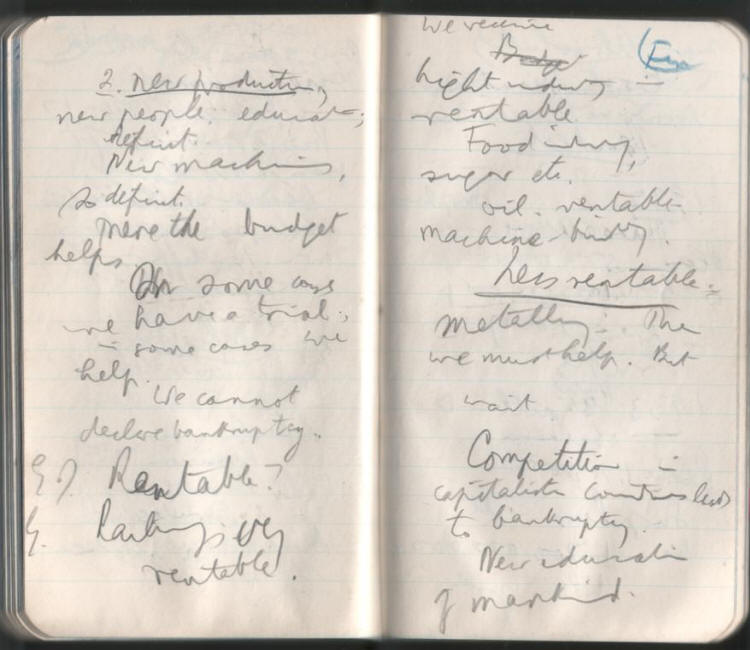 2. new production,
new people. educat-;
deficit.
New machines,
so deficit.
Here the budget
helps.
In some cases
we have a trial.,
- some cases we
help.
We cannot
declare bankruptcy.
Rentable?
Railways very
rentable.
We receive
(Fin
light industry -
rentable
Food industry,
sugar etc.
oil. rentable.
machine-building.
Less rentable.
metallurgy. The
we must help. But
wait
Competition in
capitalist countries leads
to bankruptcy.
New education
of mankind.